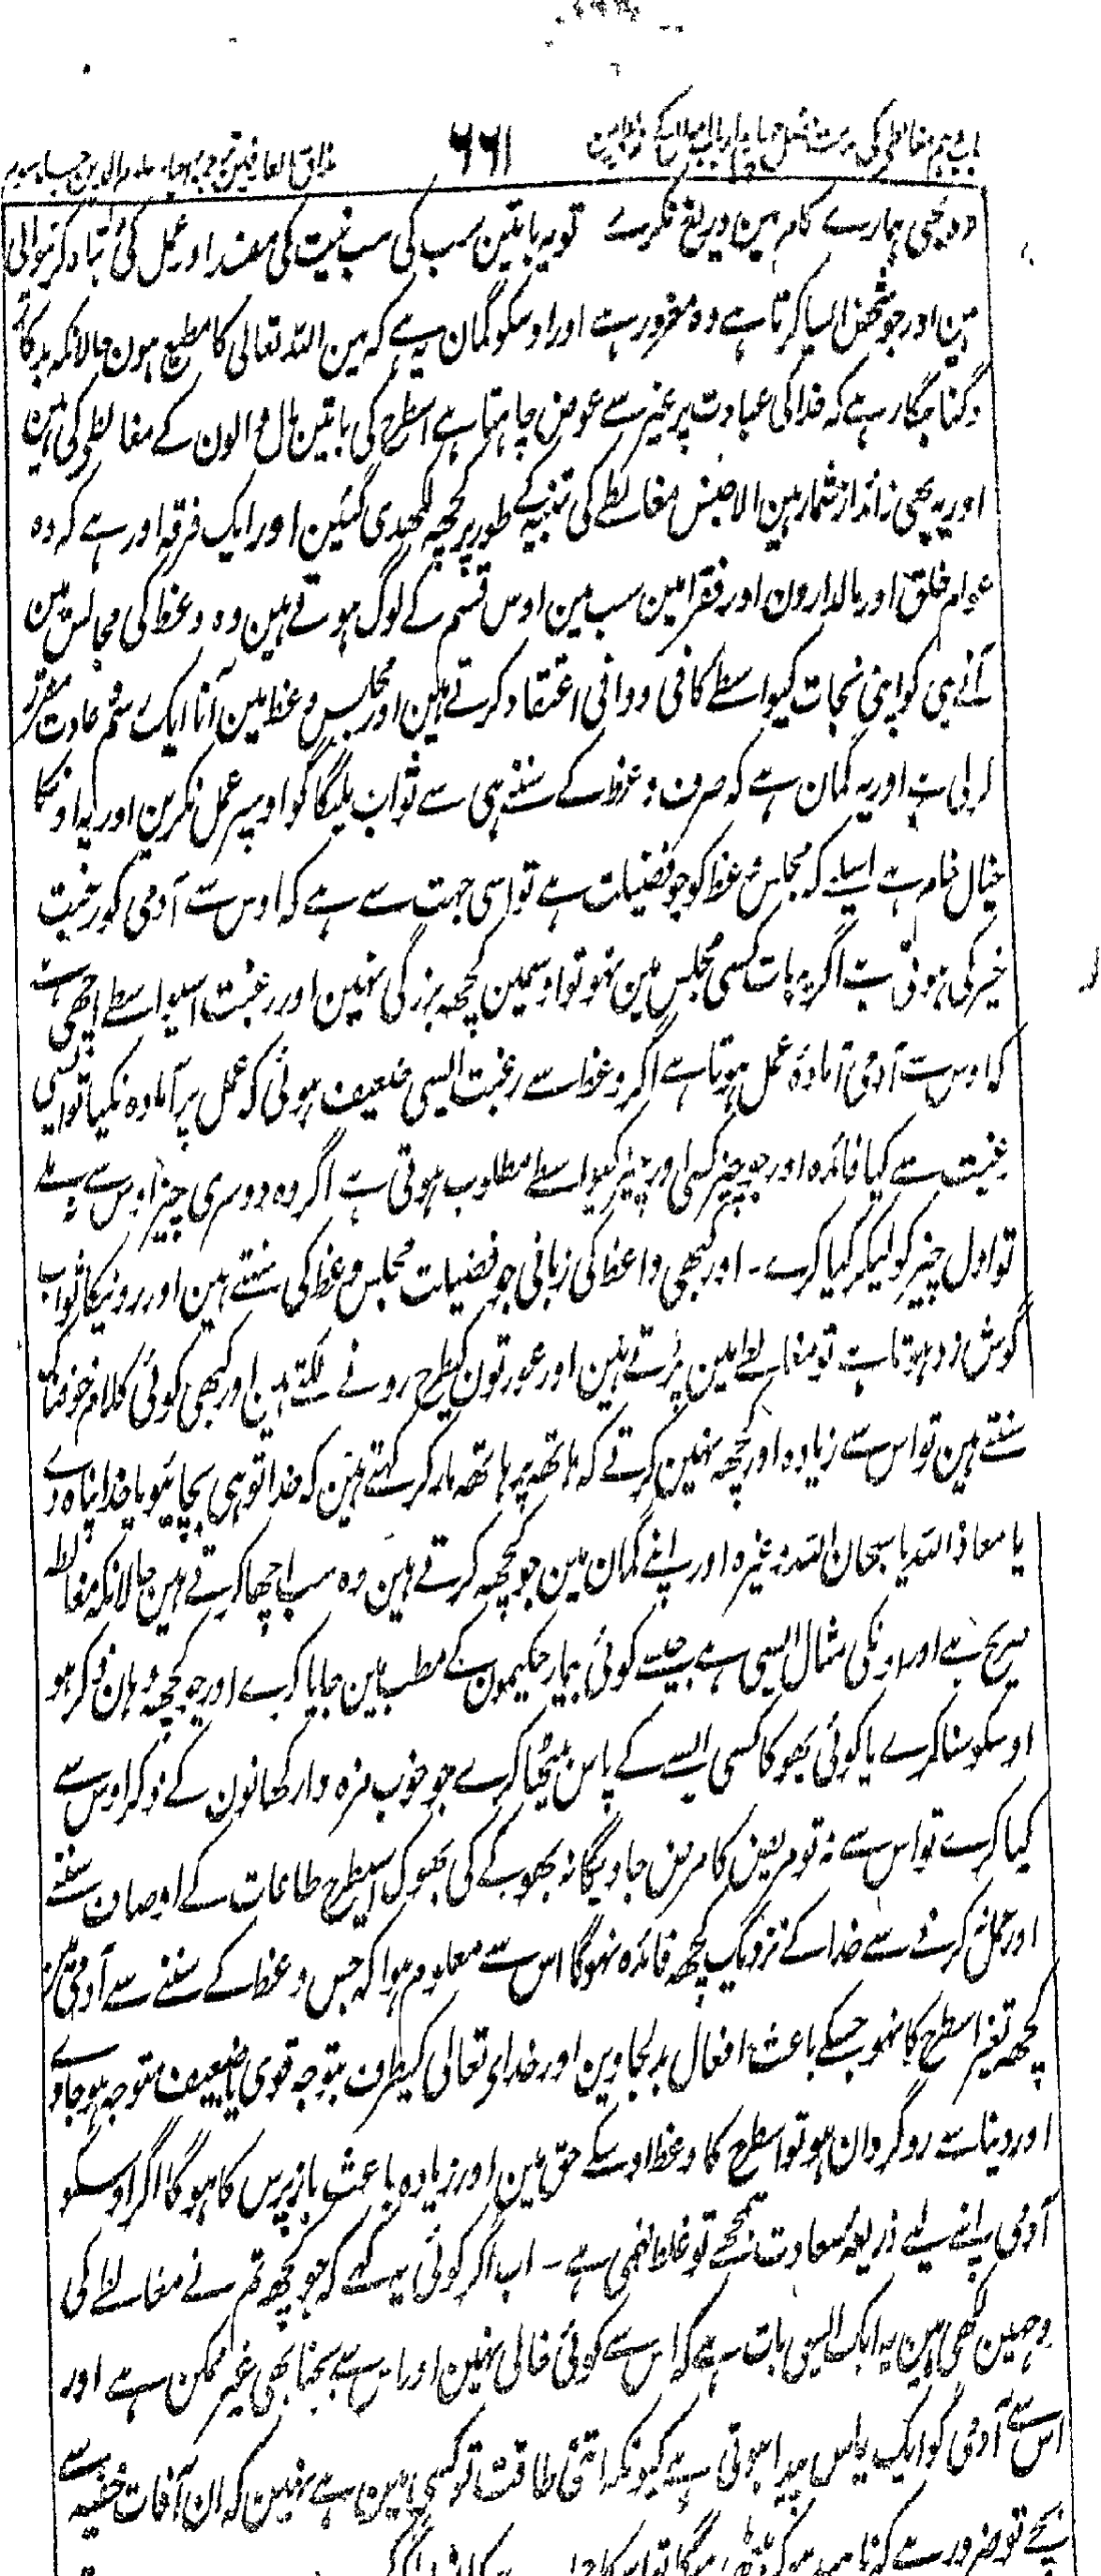 ۶۶۱
ہمارے کام مین دریغ نکرے تو یہ باتین سب کی سب نیت کی مفسد اور عمل کی تباہ کرنیوالی
ہین اور جو شخص ایسا کرتا ہے وہ مغرور ہے اور اوسکو گمان یہ ہے کہ مین اللہ تعالی کا مطیع ہون حالانکہ بدکار
و گناہگار ہے کہ خدا کی عبادت پر غیر سے عوض چاہتا ہے اسطرح کی باتین مال والون کے مغالطے کی ہین
اور یہ بھی زائد از شمار ہین الا جنس مغالطے کی تنبیہ کے طور پر کچھ لکھدی گئین اور ایک فرقہ اور ہے کہ وہ
عوام خلق اور مالدارون اور فقرا مین سب مین اوس قسم کے لوگ ہوتے ہین وہ وعظ کی مجالس مین
آنے ہی کو اپنی نجات کیواسطے کافی و وافی اعتقاد کرتے ہین اور مجلس وعظ مین آنا ایک رسم عادت مقرر
کر لی ہے اور یہ گمان ہے کہ صرف وعظ کے سننے ہی سے ثواب ملیگا گو اوسپر عمل نکرین اور یہ اونکا
خیال خام ہے اسلیے کہ مجلس وعظ کو جو فضیلت ہے تو اسی جہت سے ہے کہ اوس سے آدمی کو رغبت
خیر کی ہوتی ہے اگر یہ بات کسی مجلس مین نہو تو اوسمین کچھ بزرگی نہین اور رغبت اسیواسطے اچھی ہے
کہ اوس سے آدمی آمادہ عمل ہوتا ہے اگر وعظ سے رغبت ایسی ضعیف ہوئی کہ عمل پر آمادہ نکیا تو ایسی
رغبت سے کیا فائدہ اور جو چیز کسی اور چیز کیواسطے مطلوب ہوتی ہے اگر وہ دوسری چیز اوس سے نہ ملے
تو اول چیز کو لیکر کیا کرے ۔ اور کبھی واعظ کی زبانی جو فضیلت مجلس وعظ کی سنتے ہین اور رونیکا ثواب
گوش زد ہوتا ہے تو مغالطے مین پڑتے ہین اور عورتون کیطرح رونے لگتے ہین اور کبھی کوئی کلام خوفناک
سنتے ہین تو اس سے زیادہ اور کچھ نہین کرتے کہ ہاتھ پر ہاتھ مار کر کہتے ہین کہ خدا تو ہی بچائیو یا خدا پناہ دے
یا معاذ اللہ یا سبحان اللہ وغیرہ اور اپنے گمان مین جو کچھ کرتے ہین وہ سب اچھا کرتے ہین حالانکہ مغالطہ
صریح ہے اور اونکی مثال ایسی ہے جیسے کوئی بیمار حکیمون کے مطب مین جایا کرے اور جو کچھ وہان ذکر ہو
اوسکو سنا کرے یا کوئی بھوکا کسی ایسے کے پاس بیٹھا کرے جو خوب مزہ دار کھانون کے ذکر اوس سے
کیا کرے تو اس سے نہ تو مریض کا مرض جاویگا نہ بھوکے کی بھوک اسیطرح طاعات کے اوصاف سننے
اور عمل نکرنے سے خدا کے نزدیک کچھ فائدہ نہوگا اس سے معلوم ہوا کہ جس وعظ کے سننے سے آدمی مین
کچھ تغیر اسطرح کا نہو جسکے باعث افعال بدلجاوین اور خدای تعالی کیطرف بتوجہ قوی یا ضعیف متوجہ ہوجاوے
اور دنیا سے روگردان ہو تو اسطرح کا وعظ اوسکے حق مین اور زیادہ باعث بازپرس کا ہوگا اگر اوسکو
آدمی اپنے لیے ذریعہ سعادت سمجھے تو غلط فہمی ہے ۔ اب اگر کوئی یہ کہے کہ جو کچھ تم نے مغالطے کی
وجہین لکھی ہین یہ ایک ایسی بات ہے کہ اس سے کوئی خالی نہین اور اس سے بچنا بھی غیر ممکن ہے اور
اس سے آدمی کو ایک یاس پیدا ہوتی ہے کیونکہ اتنی طاقت تو کسی مین ہے نہین کہ ان آفات خفیہ سے
بچے تو ضرور ہے کہ